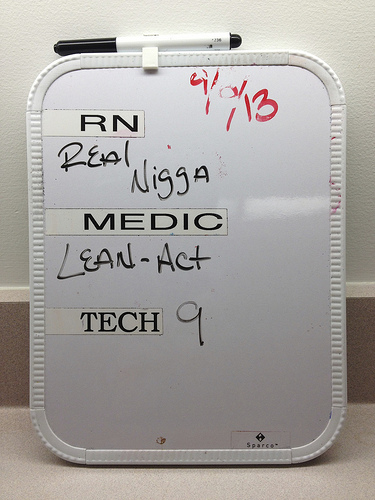 9/ /13
RN
REAl
Nigga
MEDIC
LEAN-Act
TECH 9
Sparco